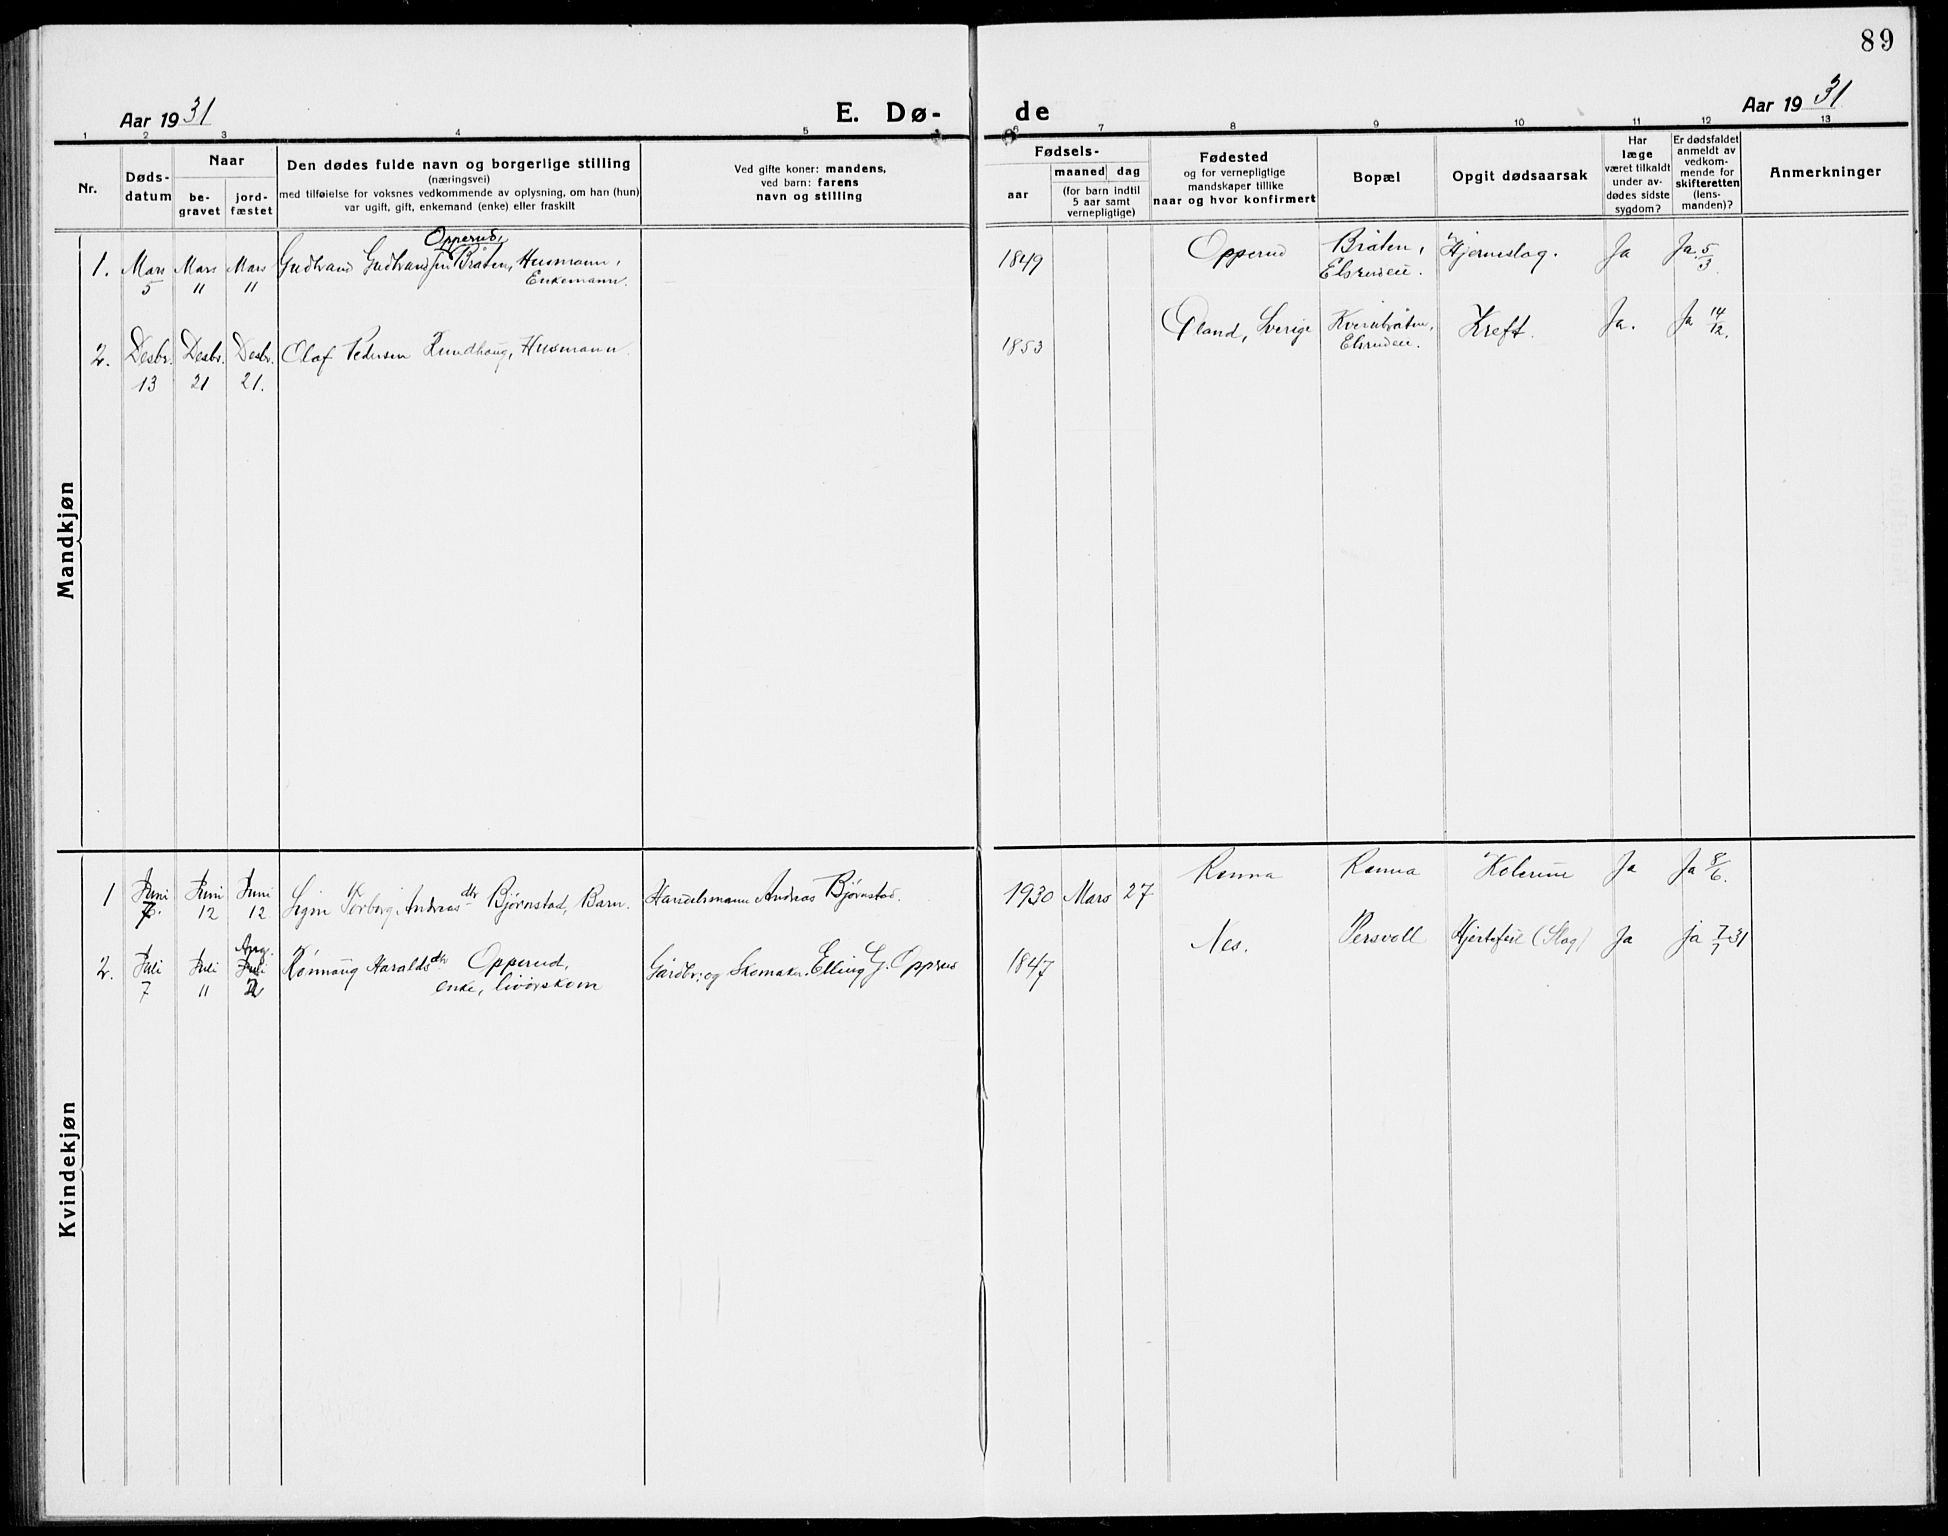 89
Aar 1931 E. Dø- de Aar 1931
1 2 3 4 5 6 7 8 9 10 11 12 13
Nr.
Døds-
datum
Naar
be-
gravet
jord-
fæstet
Den dødes fulde navn og borgerlige stilling
(næringsvei)
med tilføielse for voksnes vedkommende av oplysning, om han (hun)
var ugift, gift, enkemand (enke) eller fraskilt
Ved gifte koner: mandens,
ved barn: farens
navn og stilling
Fødsels-
aar
maaned dag
(for barn indtil
5 aar samt
vernepligtige)
Fødested
og for vernepligtige
mandskaper tillike
naar og hvor konfirmert
Bopæl
Opgit dødsaarsak
Har
læge
været tilkaldt
under av-
dødes sidste
sygdom?
Er dødsfaldet
anmeldt av
vedkom-
mende for
skifteretten
(lens-
manden)?
Anmerkninger
Mandkjøn
Opperud,
1. Mars Mars Mars Gudbrand Gudbrandsen Bråten, Husmann, 1849 Opperud Bråten, Hjerneslag. Ja Ja. 5/3.
5 11 11 Enkemann. Elsrudeie.
2. Desbr. Desbr. Desbr. Olaf Pedersen Rundhaug, Husmann. 1853 Øland, Sverige Kvernbråten, Kreft. Ja. Ja 14/12.
13 21 21. Elsrudeie.
Kvindekjøn
1 Juni Juni Juni Signe Torborg Andreasdtr Bjørnstad, Barn. Handelsmann Andreas Bjørnstad. 1930 Mars 27 Ramna Ramna Kolerine Ja Ja 8/6.
7. 12 12
Aug.
2. Juli Juli Juli Rønnaug Haraldsdtr Opperud, Gårdbr. og Skomaker Elling G. Opperud 1847 Nes. Persvoll Hjertefeil (Slag) Ja ja 7/7 31
7 11 2 enke, livørskone